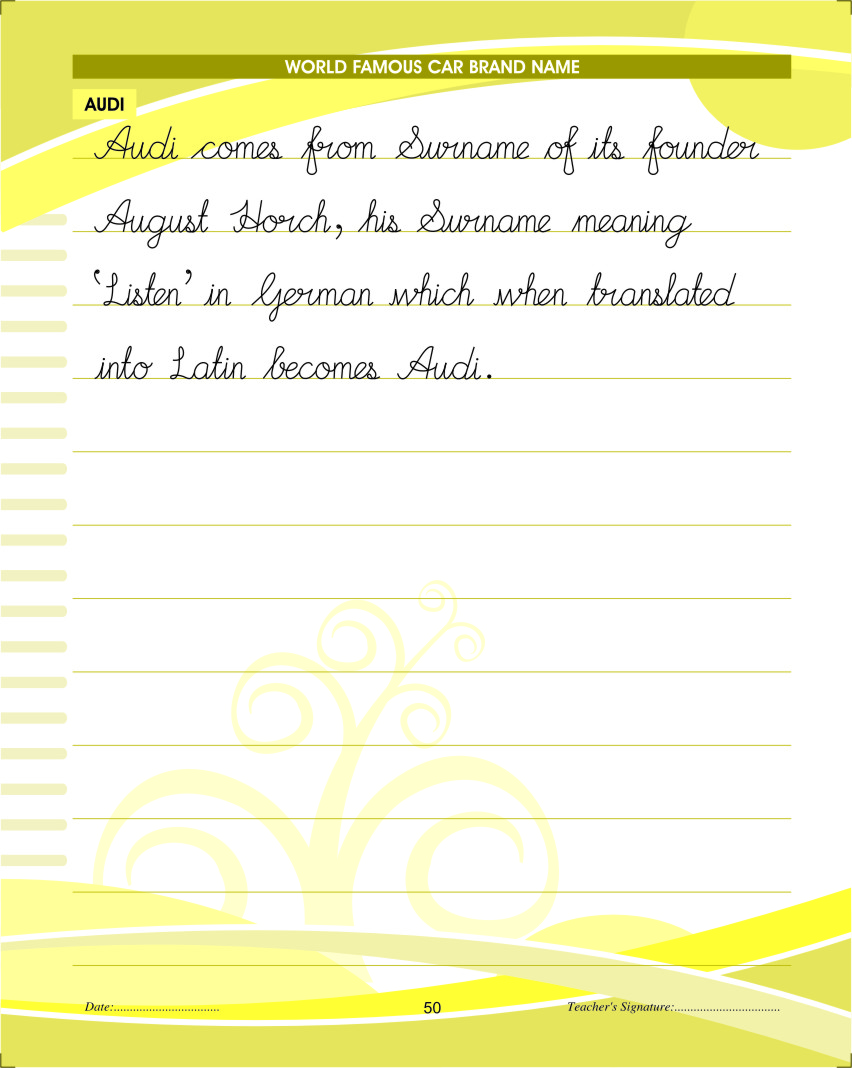 WORLD FAMOUS CAR BRAND NAME
AUDI
Audi comes from Surname of its founder
August Horch, his Surname meaning
‘Listen’ in German which when translated
into Latin becomes Audi.
Date:.................................
50
Teacher's Signature:.................................